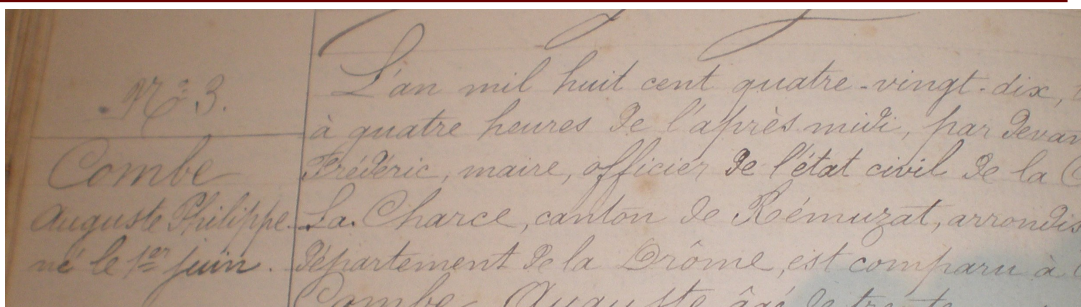 N° 3.
Combe
Auguste Philippe
né le 1er juin.
L'an mil huit cent quatre-vingt-dix,
à quatre heures de l'après midi, par devan
Frédéric, maire, officier de l'état civil de la C
La Charce, canton de Rémuzat, arrondis
département de la Drôme, est comparu à
Combe Auguste âgé de trente